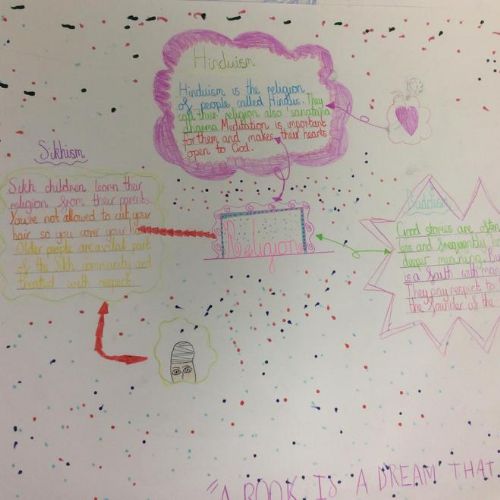 Hinduism
Hinduism is the religion
of people called Hindus. They
call their religion also 'sanatana
dharma. Meditation is important
for them and makes their hearts
open to God.
Sikhism
Sikh children learn their
religion from their parents.
You're not allowed to cut your
hair so you cover you
Older people are a vital part
of the Sikh community and
treated with respect
Religion
Good stories are
and frequently
deeper meaning.
is a faith with
They pay respect to
the founder of the
"A BOOK IS A DREAM THAT